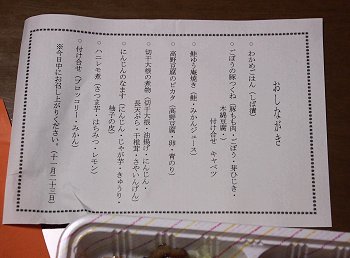 おしながき
・わかめごはん（しば漬）
・ごぼうの豚つくね（豚もも肉・ごぼう・芽ひじき・
木綿豆腐・
付け合せ　キャベツ
・鮭ゆう庵焼き（鮭・みかんジュース）
・高野豆腐のピカタ（高野豆腐・卵・青のり）
・切干大根の煮物（切干大根・油揚げ・にんじん・
長天ぷら・干椎茸・さやいんげん）
・にんじんのなます（にんじん・じゃが芋・きゅうり・
柚子の皮）
・ハニーレモン煮（さつま芋・はちみつ・レモン）
・付け合せ（ブロッコリー・みかん）
※今日中にお召し上がりください。（十一月二十三日）